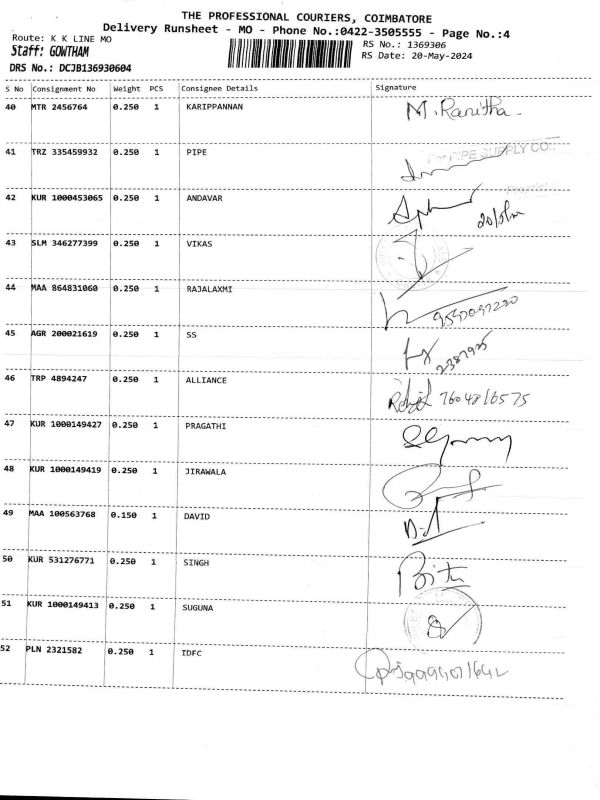 THE PROFESSIONAL COURIERS, COIMBATORE
Delivery Runsheet - MO - Phone No.:0422-3505555 - Page No.:4
Route: K K LINE MO
RS No.: 1369306
Staff: GOWTHAM
RS Date: 20-May-2024
DRS No.: DCJB136930604
S No Consignment No Weight PCS Consignee Details Signature
40 MTR 2456764 0.250 1 KARIPPANNAN M. Ranitha
41 TRZ 335459932 0.250 1 PIPE For PIPE SUPPLY CO.
42 KUR 1000453065 0.250 1 ANDAVAR
43 SLM 346277399 0.250 1 VIKAS
44 MAA 864831060 0.250 1 RAJALAXMI
45 AGR 200021619 0.250 1 SS
46 TRP 4894247 0.250 1 ALLIANCE
47 KUR 1000149427 0.250 1 PRAGATHI
48 KUR 1000149419 0.250 1 JIRAWALA
49 MAA 100563768 0.150 1 DAVID
50 KUR 531276771 0.250 1 SINGH
51 KUR 1000149413 0.250 1 SUGUNA
52 PLN 2321582 0.250 1 IDFC